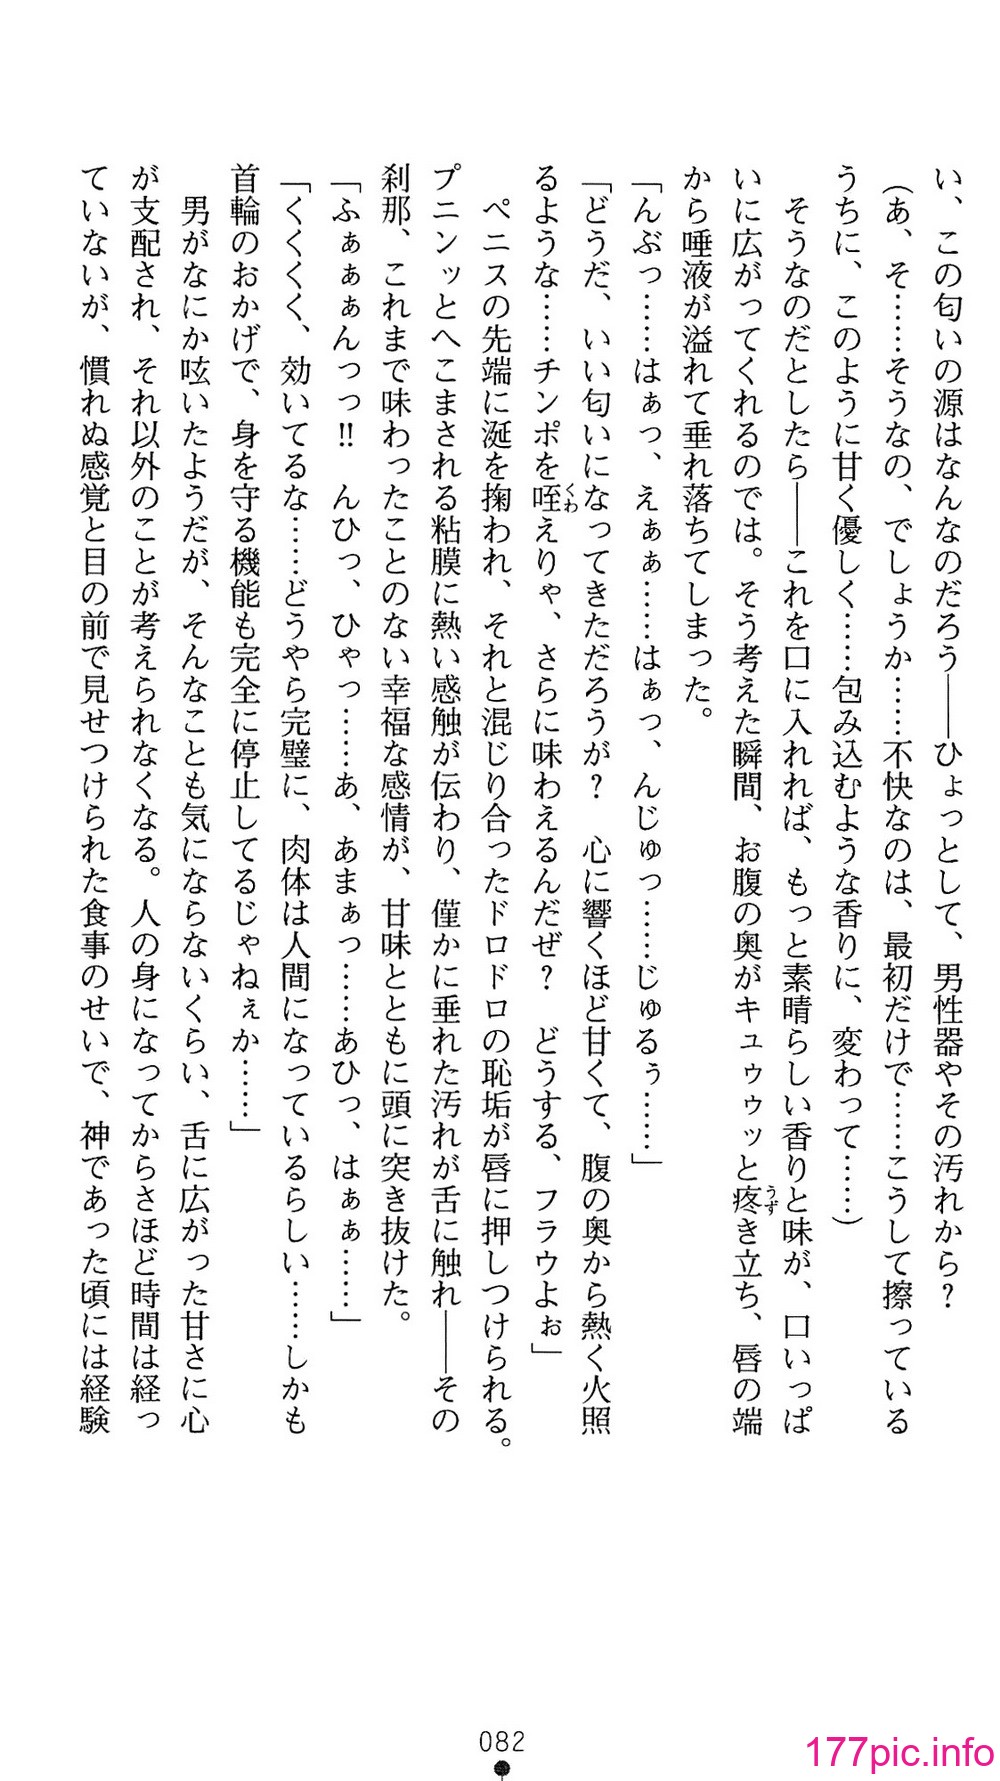 い、この匂いの源はなんなのだろう――ひょっとして、男性器やその汚れから?
(あ、そ……そうなの、でしょうか……不快なのは、最初だけで……こうして擦っている
うちに、このように甘く優しく……包み込むような香りに、変わって……)
そうなのだとしたら――これを口に入れれば、もっと素晴らしい香りと味が、口いっぱ
いに広がってくれるのでは。そう考えた瞬間、お腹の奥がキュゥゥッと疼うずき立ち、唇の端
から唾液が溢れて垂れ落ちてしまった。
「んぶっ……はぁっ、えぁぁ……はぁっ、んじゅっ……じゅるぅ……」
「どうだ、いい匂いになってきただろうが? 心に響くほど甘くて、腹の奥から熱く火照
るような……チンポを咥くわえりゃ、さらに味わえるんだぜ? どうする、フラウよぉ」
ペニスの先端に涎を掬われ、それと混じり合ったドロドロの恥垢が唇に押しつけられる。
プニンッとへこまされる粘膜に熱い感触が伝わり、僅かに垂れた汚れが舌に触れ――その
刹那、これまで味わったことのない幸福な感情が、甘味とともに頭に突き抜けた。
「ふぁぁぁんっっ!! んひっ、ひゃっ……あ、あまぁっ……あひっ、はぁぁ……」
「くくくく、効いてるな……どうやら完璧に、肉体は人間になっているらしい……しかも
首輪のおかげで、身を守る機能も完全に停止してるじゃねぇか……」
男がなにか呟いたようだが、そんなことも気にならないくらい、舌に広がった甘さに心
が支配され、それ以外のことが考えられなくなる。人の身になってからさほど時間は経っ
ていないが、慣れぬ感覚と目の前で見せつけられた食事のせいで、神であった頃には経験
082
177pic.info